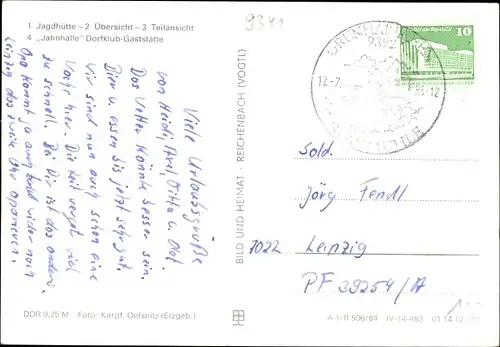 1 Jagdhütte – 2 Übersicht – 3 Teilansicht
4 „Jahnhalle" Dorfklub-Gaststätte
9341
Viele Urlaubsgrüße
von Heidi, Axel, Ditta u. Olaf.
Das Wetter könnte besser sein.
Bier u. essen bis jetzt sehr gut.
Wir sind nun auch schon eine
hier. Die Zeit verget viel
zu schnell. Bei Dir ist das anders.
Opa kommt ja auch bald wieder nach
Leipzig das zweite Ohr operieren.
BILD UND HEIMAT · REICHENBACH (VOGTL)
12-7.
10
Sold.
Jörg Fendl
7022 Leipzig
PF 39254/A
DDR 0,25 M Foto: Karpf, Oelsnitz (Erzgeb.)
A 1/B 506/84 IV-14-483 01 14 12